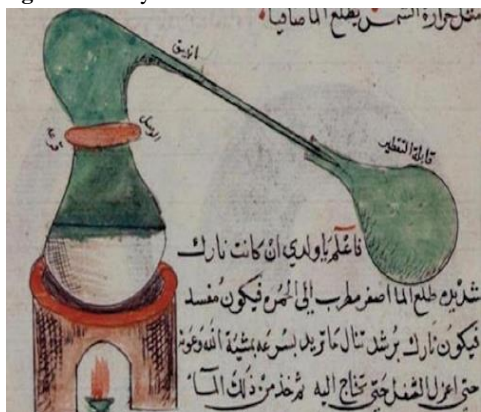 مثل حرارة الشمس يطلع الما صافيا
انبيق
الوصل
قرعه
قابلة التقطير
فاعلم يا ولدي ان كانت نارك
شديده طلع الما اصفر مطرب الى الحمره فيكون مفسد
فيكون نارك برشد تنال ما تريد بسرعه بمشية الله وعونه
حتى اعزل الثفل حتى تحتاج اليه ثم خذ من ذلك الما